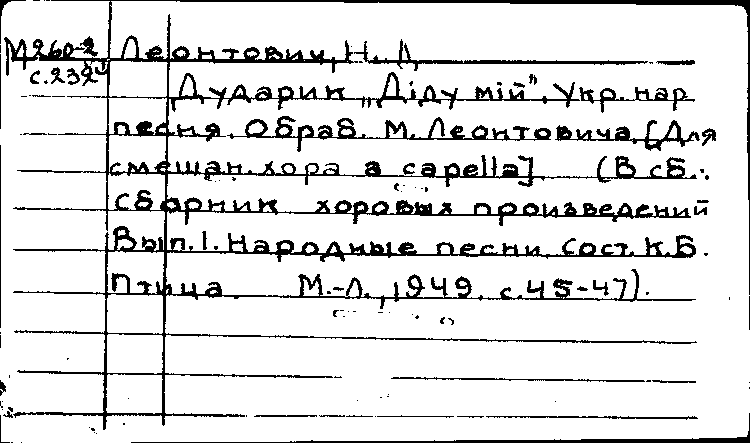 М260-2 Леонтович, Н. Д.
с.232
Дударик „Діду мій". Укр. нар
песня. Обраб. М. Леонтовича. [Для
смешан. хора a capella]. (В сб.:
сборник хоровых произведений
Вып. 1. Народные песни. Сост. К.Б.
Птица. М.-Л., 1949. с.45-47).